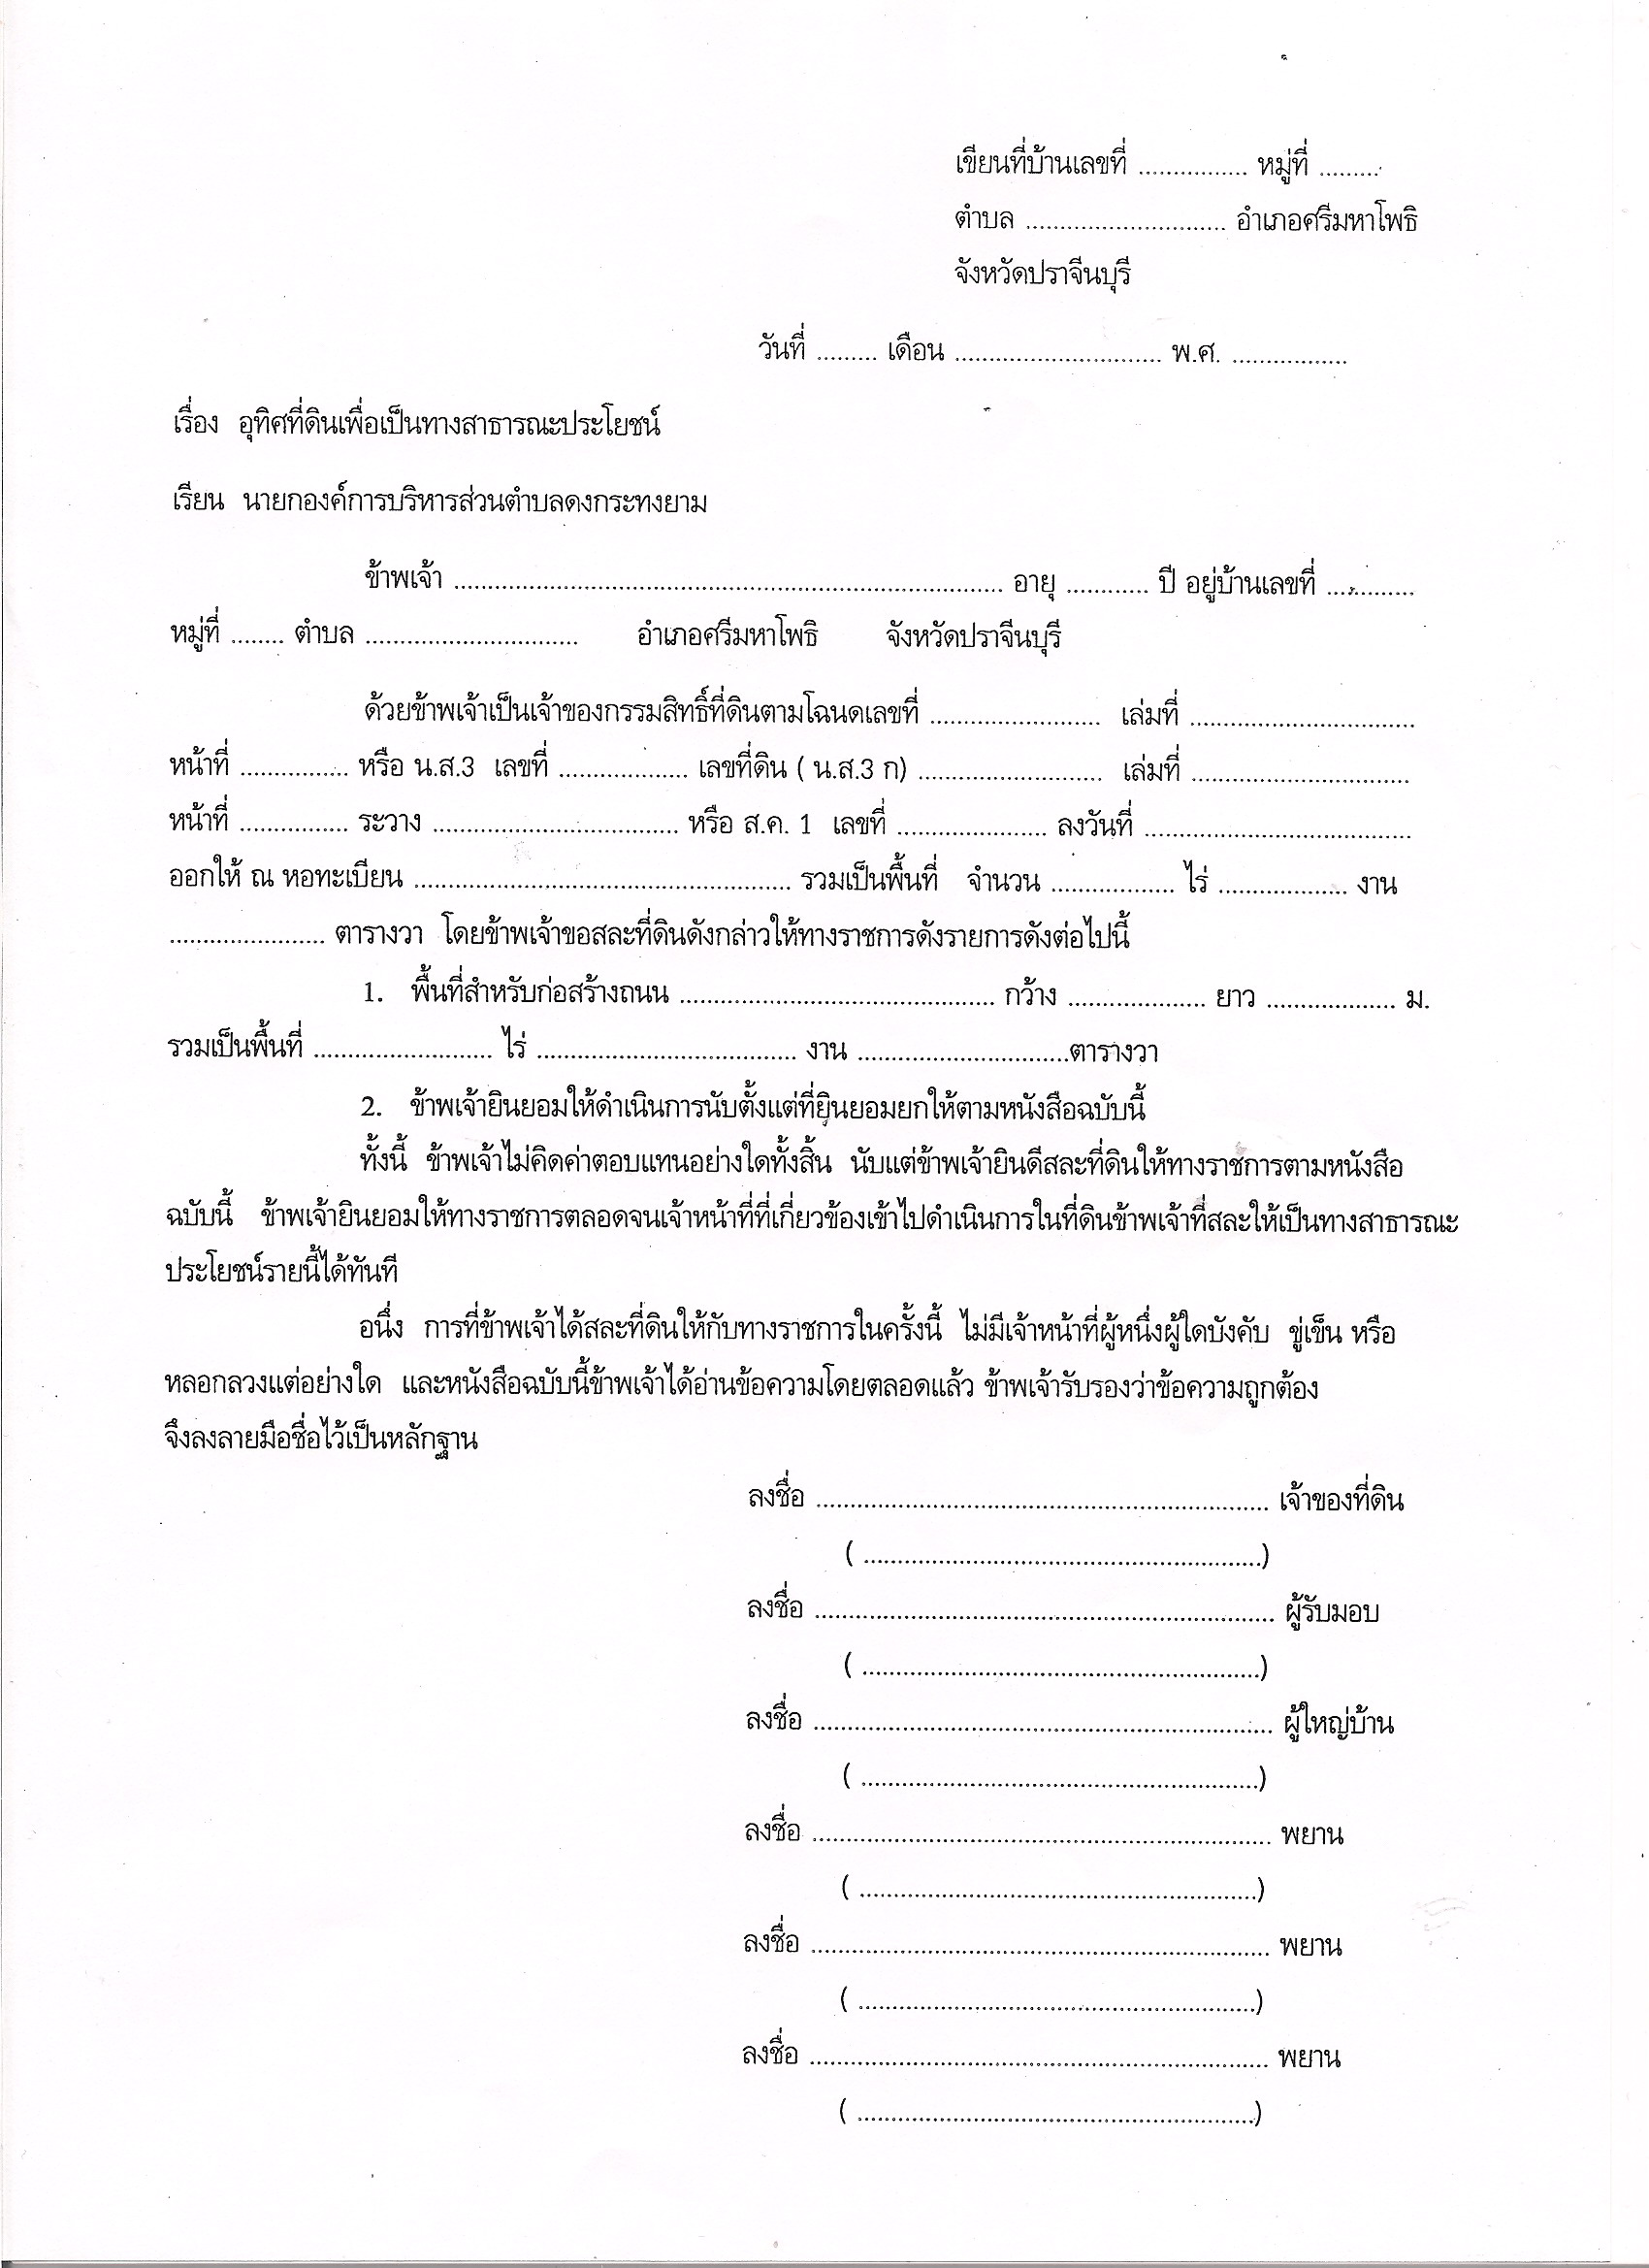 เขียนที่บ้านเลขที่ ................ หมู่ที่ .........
ตำบล ............................. อำเภอศรีมหาโพธิ
จังหวัดปราจีนบุรี
วันที่ ......... เดือน .............................. พ.ศ. .................
เรื่อง อุทิศที่ดินเพื่อเป็นทางสาธารณะประโยชน์
เรียน นายกองค์การบริหารส่วนตำบลดงกระทงยาม
ข้าพเจ้า ................................................................................ อายุ ............ ปี อยู่บ้านเลขที่ .............
หมู่ที่ ........ ตำบล ............................... อำเภอศรีมหาโพธิ จังหวัดปราจีนบุรี
ด้วยข้าพเจ้าเป็นเจ้าของกรรมสิทธิ์ที่ดินตามโฉนดเลขที่ ......................... เล่มที่ .................................
หน้าที่ ................ หรือ น.ส.3 เลขที่ ................... เลขที่ดิน ( น.ส.3 ก) ........................... เล่มที่ ................................
หน้าที่ ................ ระวาง .................................... หรือ ส.ค. 1 เลขที่ ...................... ลงวันที่ .......................................
ออกให้ ณ หอทะเบียน ....................................................... รวมเป็นพื้นที่ จำนวน .................. ไร่ ................... งาน
....................... ตารางวา โดยข้าพเจ้าขอสละที่ดินดังกล่าวให้ทางราชการดังรายการดังต่อไปนี้
1. พื้นที่สำหรับก่อสร้างถนน .............................................. กว้าง .................... ยาว ................... ม.
รวมเป็นพื้นที่ .......................... ไร่ ...................................... งาน ...............................ตารางวา
2. ข้าพเจ้ายินยอมให้ดำเนินการนับตั้งแต่ที่ยินยอมยกให้ตามหนังสือฉบับนี้
ทั้งนี้ ข้าพเจ้าไม่คิดค่าตอบแทนอย่างใดทั้งสิ้น นับแต่ข้าพเจ้ายินดีสละที่ดินให้ทางราชการตามหนังสือ
ฉบับนี้ ข้าพเจ้ายินยอมให้ทางราชการตลอดจนเจ้าหน้าที่ที่เกี่ยวข้องเข้าไปดำเนินการในที่ดินข้าพเจ้าที่สละให้เป็นทางสาธารณะ
ประโยชน์รายนี้ได้ทันที
อนึ่ง การที่ข้าพเจ้าได้สละที่ดินให้กับทางราชการในครั้งนี้ ไม่มีเจ้าหน้าที่ผู้หนึ่งผู้ใดบังคับ ขู่เข็น หรือ
หลอกลวงแต่อย่างใด และหนังสือฉบับนี้ข้าพเจ้าได้อ่านข้อความโดยตลอดแล้ว ข้าพเจ้ารับรองว่าข้อความถูกต้อง
จึงลงลายมือชื่อไว้เป็นหลักฐาน
ลงชื่อ .................................................................. เจ้าของที่ดิน
( ..........................................................)
ลงชื่อ ................................................................... ผู้รับมอบ
( ..........................................................)
ลงชื่อ ................................................................... ผู้ใหญ่บ้าน
( ..........................................................)
ลงชื่อ ................................................................... พยาน
( ..........................................................)
ลงชื่อ ................................................................... พยาน
( ..........................................................)
ลงชื่อ ................................................................... พยาน
( ..........................................................)